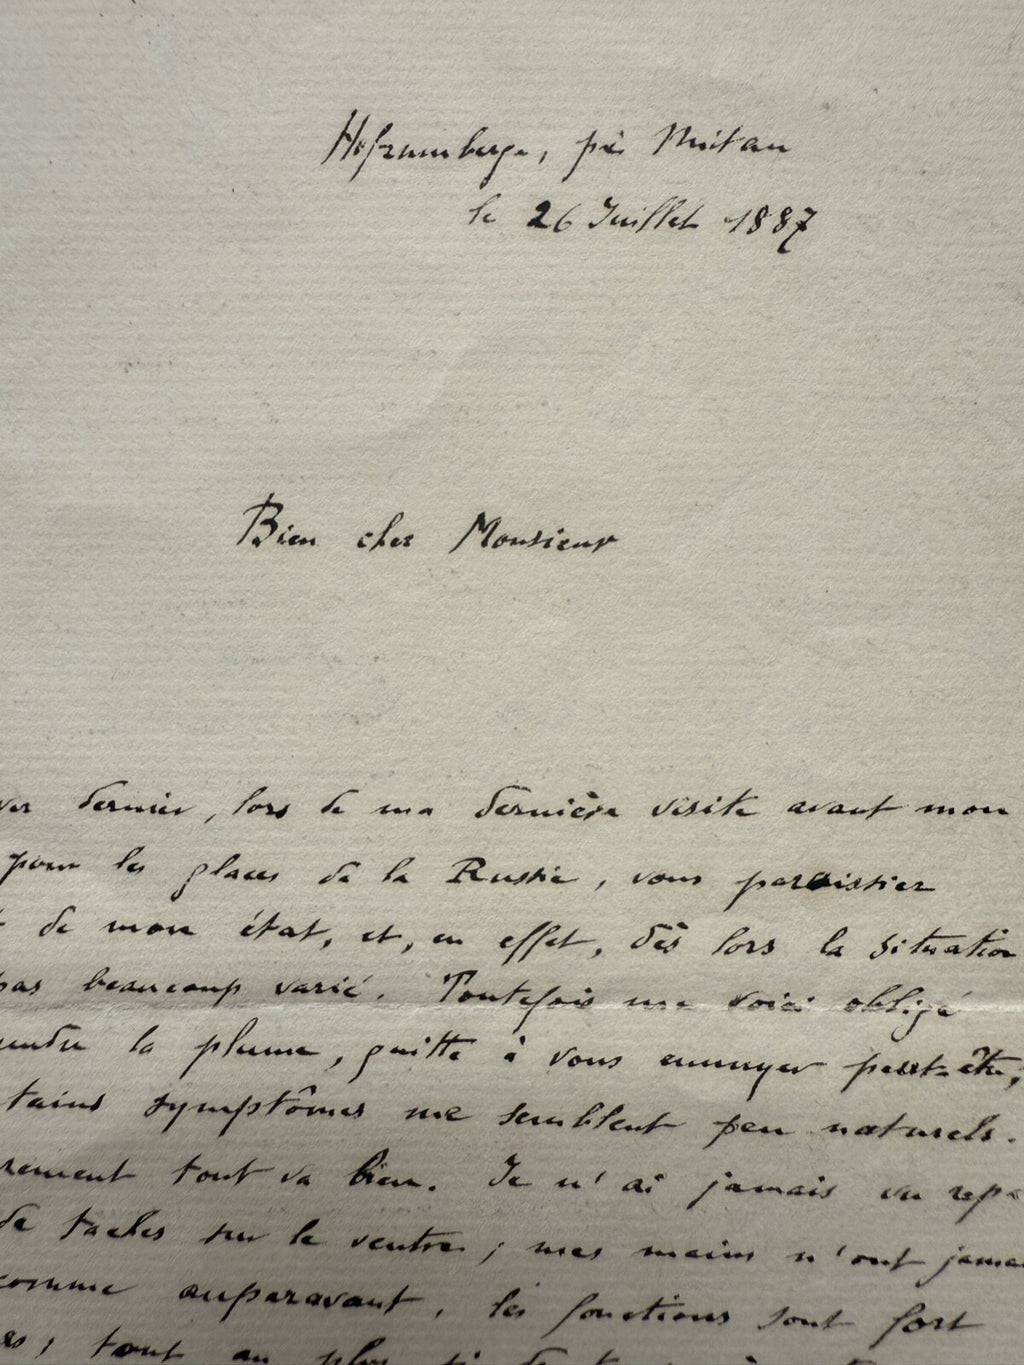 Hofzumberge, près Mitau
le 26 Juillet 1887
Bien cher Monsieur
ver dernier, lors de ma dernière visite avant mon
pour les glaces de la Russie, vous
de mon état, et, en effet, dès lors la situation
pas beaucoup varié. Toutefois me voici obligé
endre la plume, quitte à vous ennuyer peut-être,
tains symptômes me semblent peu naturels.
rement tout va bien. Je n'ai jamais vu repa
de taches sur le ventre ; mes mains n'ont jamai
comme auparavant, les fonctions sont fort
tout au plus si de